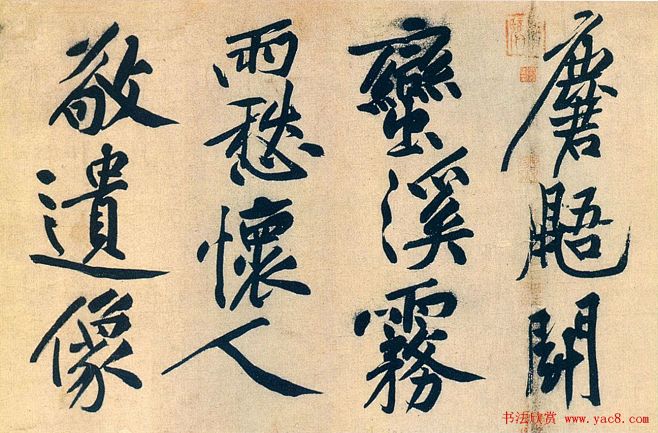 麏鼯鬪
蠻溪霧
雨愁懷人
敬遺像
书法欣赏 www.yac8.com